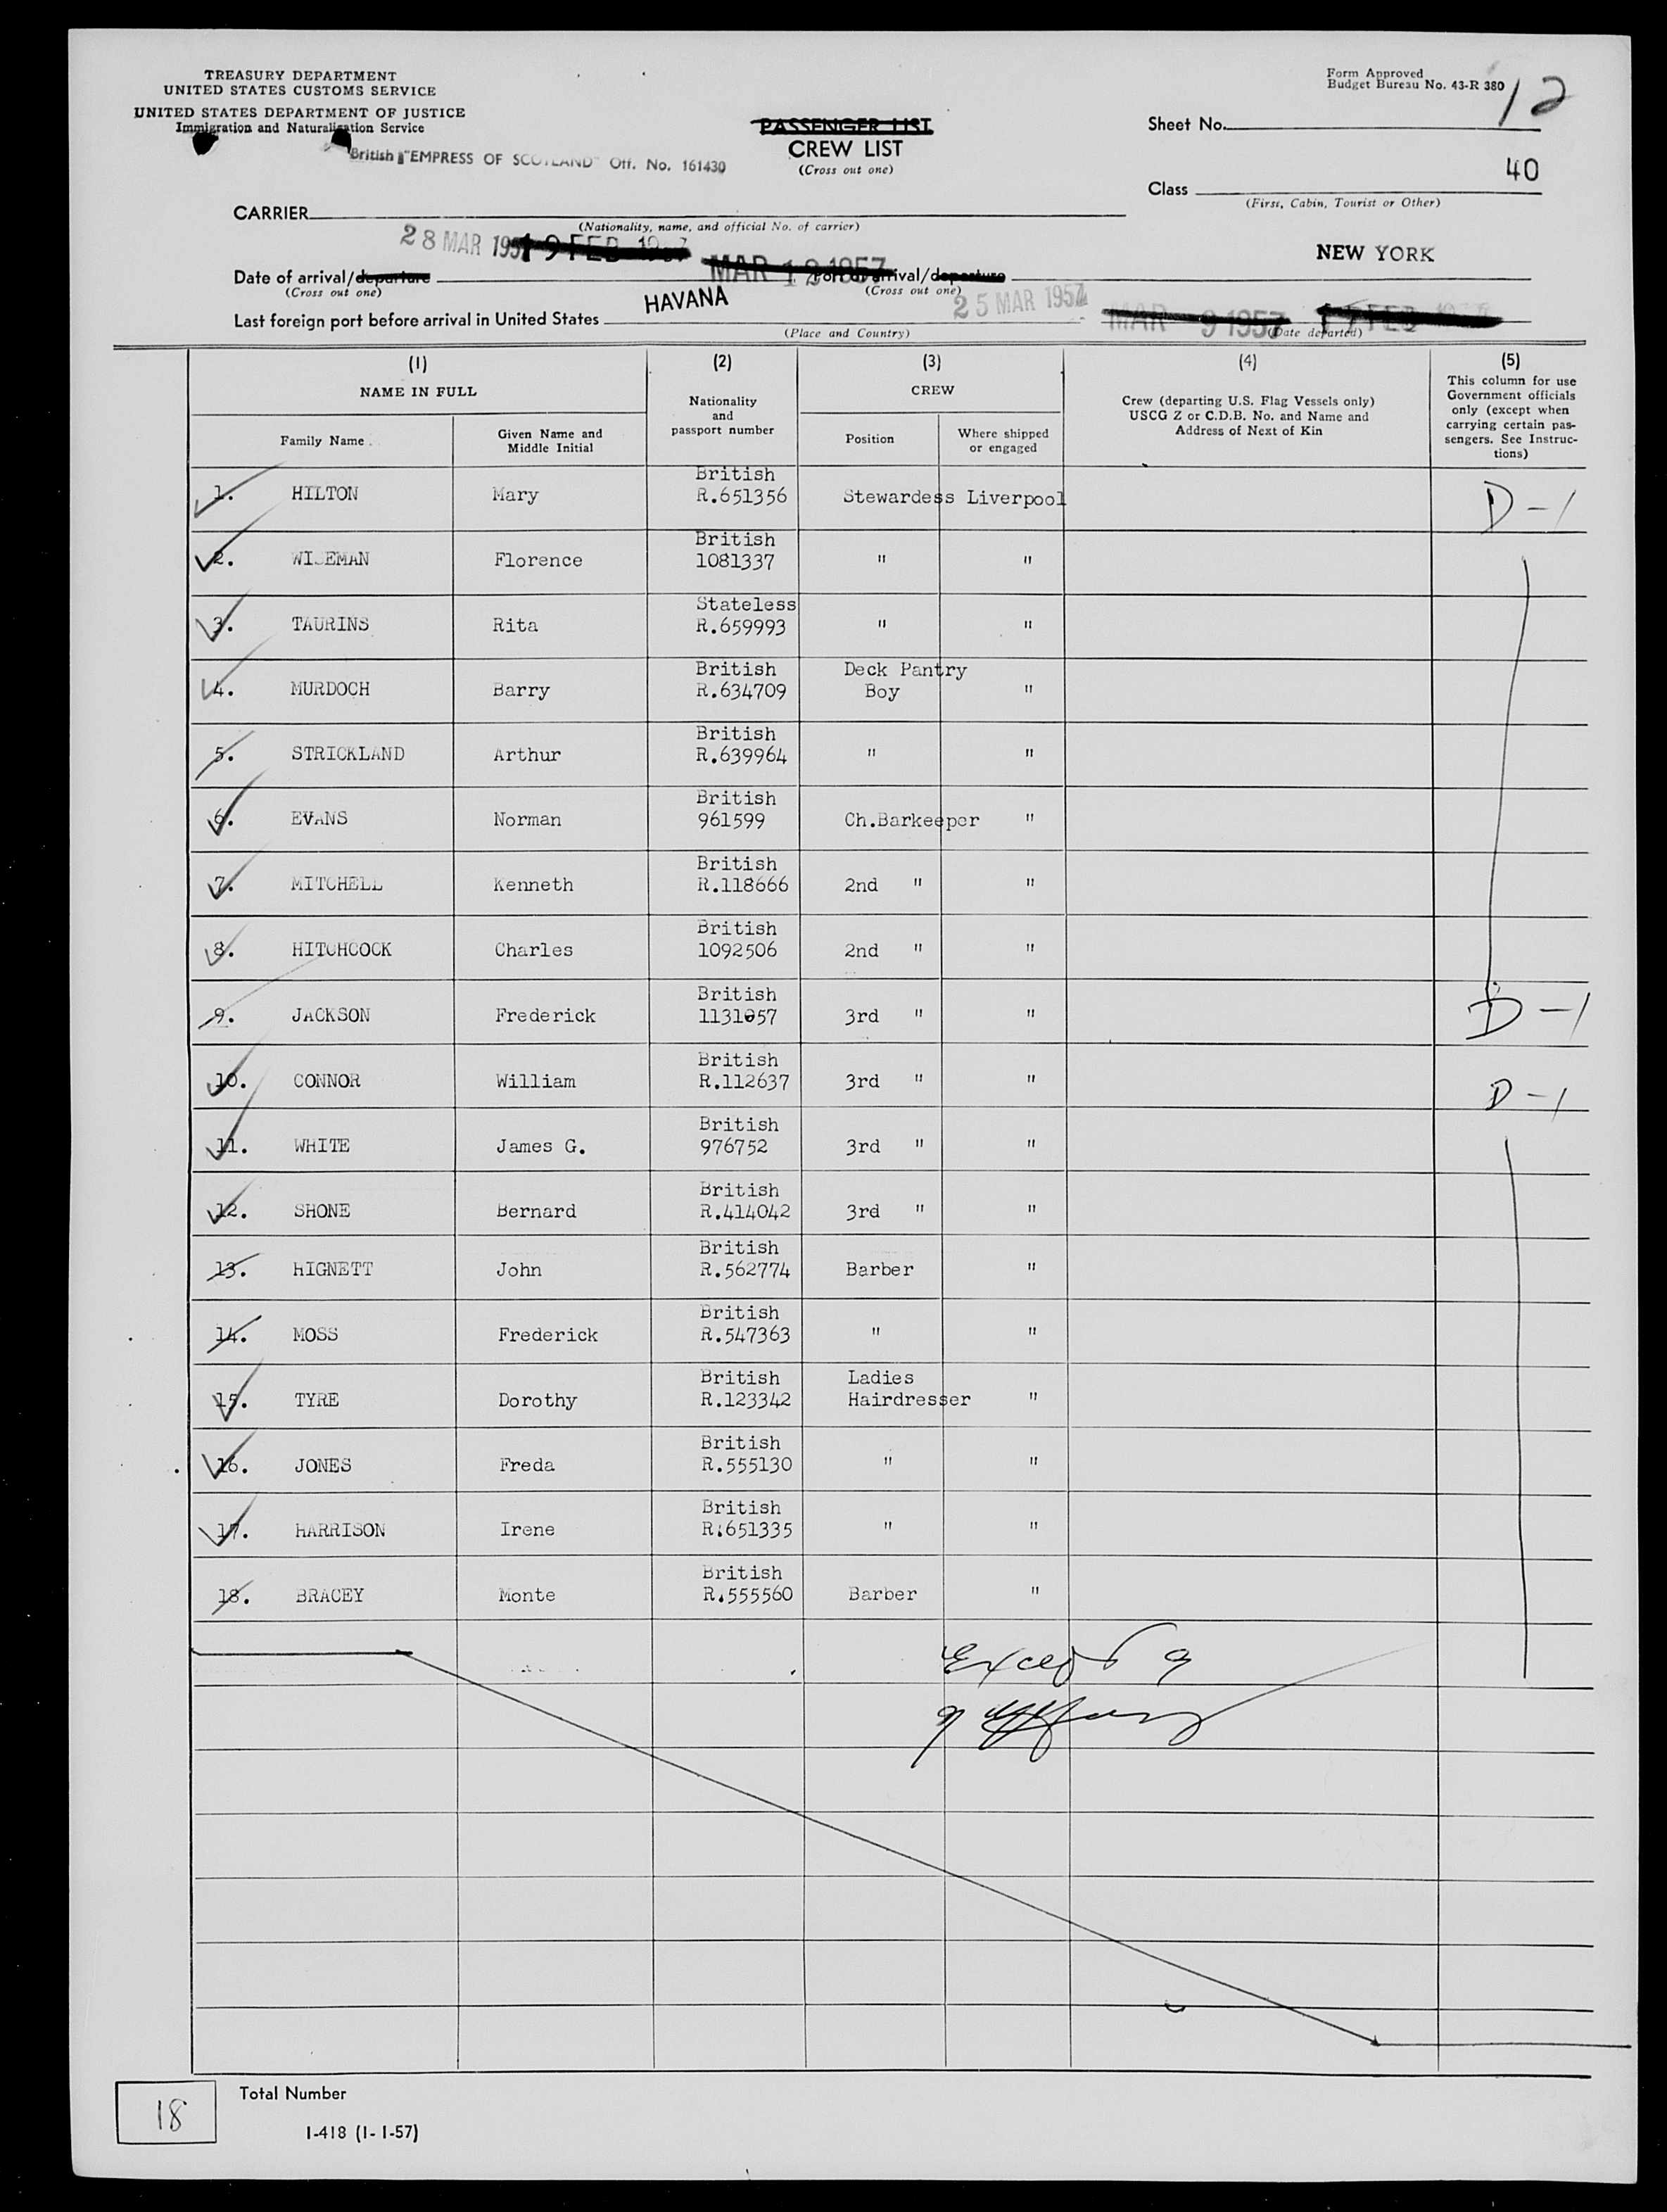 TREASURY DEPARTMENT
UNITED STATES CUSTOMS SERVICE
UNITED STATES DEPARTMENT OF JUSTICE
Immigration and Naturalization Service
Form Approved
Budget Bureau No. 43-R 380
PASSENGER LIST
CREW LIST
(Cross out one)
Sheet No. 12
British "EMPRESS OF SCOTLAND" Off. No. 161430
Class 40
(First, Cabin, Tourist or Other)
CARRIER
(Nationality, name, and official No. of carrier)
28 MAR 1957 19 FEB 1957 MAR 12 1957 NEW YORK
Date of arrival/departure Port of arrival/departure
(Cross out one) (Cross out one)
Last foreign port before arrival in United States HAVANA 25 MAR 1957 MAR 9 1957
(Place and Country) (Date departed)
(1) (2) (3) (4) (5)
NAME IN FULL
Family Name
Given Name and
Middle Initial
Nationality
and
passport number
CREW
Position
Where shipped
or engaged
Crew (departing U.S. Flag Vessels only)
USCG Z or C.D.B. No. and Name and
Address of Next of Kin
This column for use
Government officials
only (except when
carrying certain pas-
sengers. See Instruc-
tions)
British
1. HILTON Mary R.651356 Stewardess Liverpool D-1
British
2. WISEMAN Florence 1081337 " "
Stateless
3. TAURINS Rita R.659993 " "
British Deck Pantry
4. MURDOCH Barry R.634709 Boy "
British
5. STRICKLAND Arthur R.639964 " "
British
6. EVANS Norman 961599 Ch.Barkeeper "
British
7. MITCHELL Kenneth R.118666 2nd " "
British
8. HITCHCOCK Charles 1092506 2nd " "
British
9. JACKSON Frederick 1131057 3rd " " D-1
British
10. CONNOR William R.112637 3rd " " D-1
British
11. WHITE James G. 976752 3rd " "
British
12. SHONE Bernard R.414042 3rd " "
British
13. HIGNETT John R.562774 Barber "
British
14. MOSS Frederick R.547363 " "
British Ladies
15. TYRE Dorothy R.123342 Hairdresser "
British
16. JONES Freda R.555130 " "
British
17. HARRISON Irene R.651335 " "
British
18. BRACEY Monte R.555560 Barber "
Except 9
18 Total Number
I-418 (1-1-57)